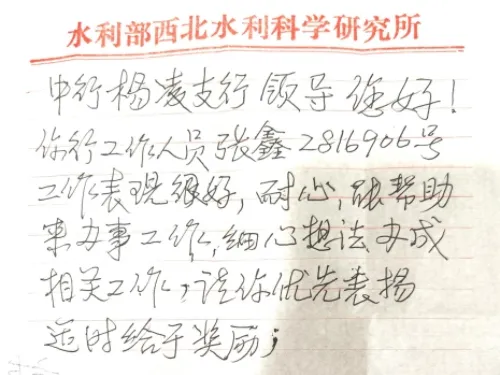 水利部西北水利科学研究所
中行杨凌支行领导您好！
你行工作人员张鑫2816906号
工作表现很好，耐心，能帮助
来办事工作，细心想法办成
相关工作，请你优先表扬
适时给予奖励；